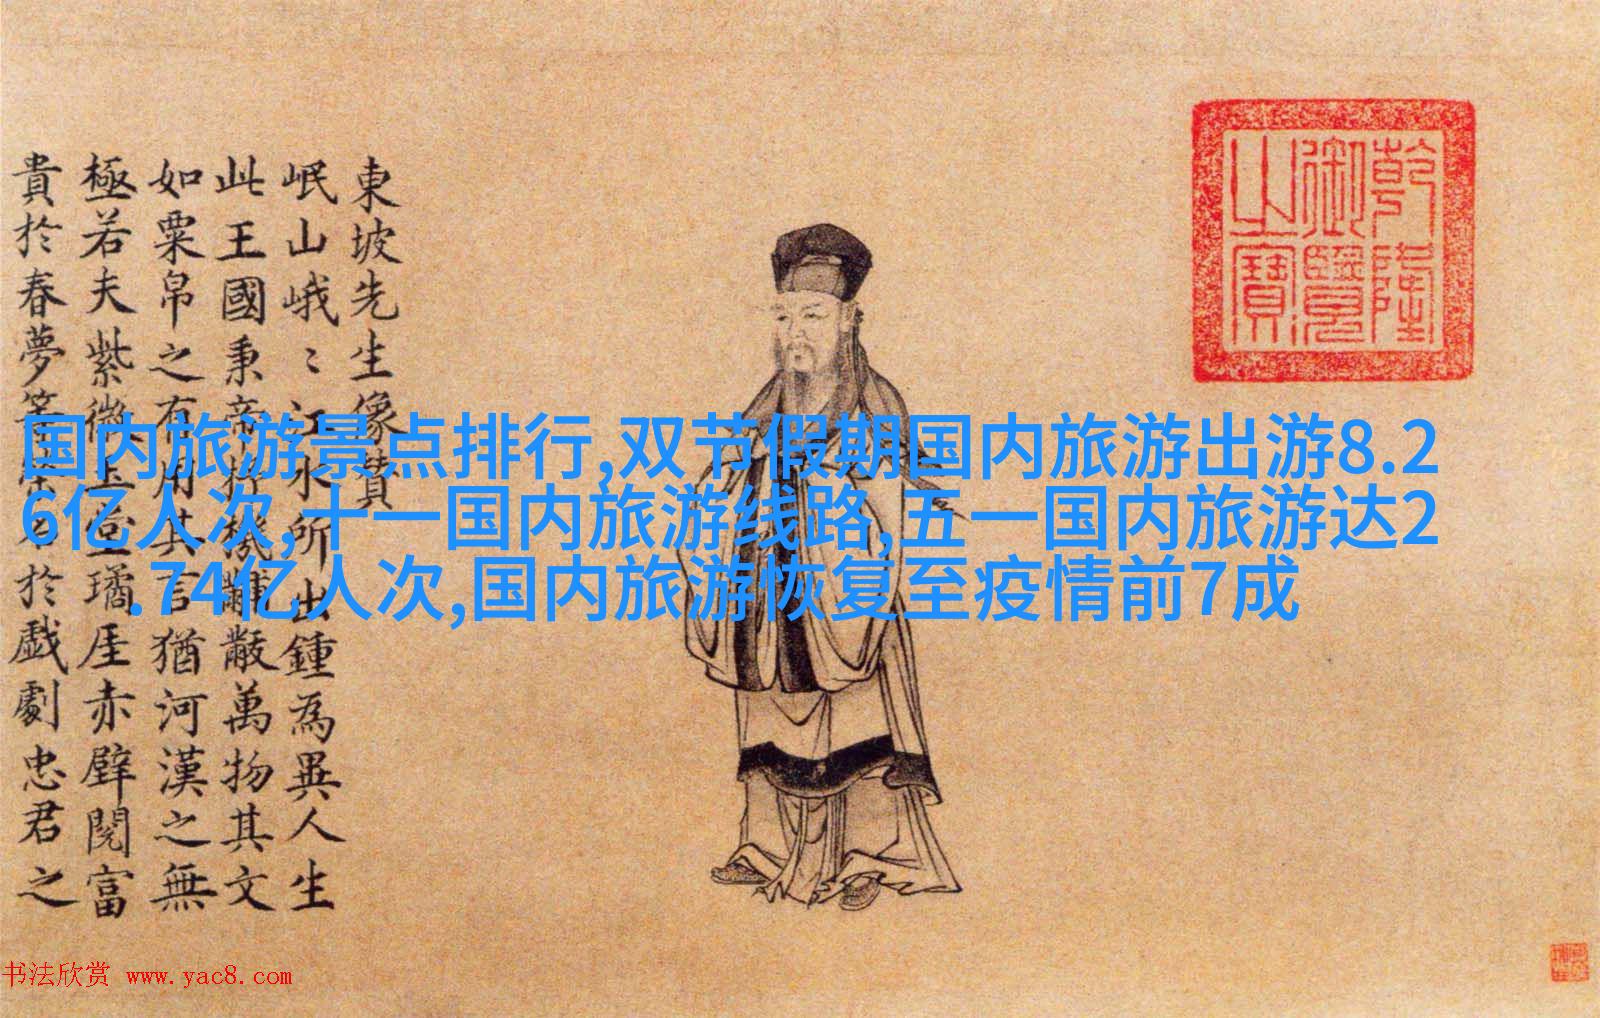 東坡先生像贊
岷山峨〻江水所出鍾為異人生
此王國秉帝杼機黼黻萬物其文
如粟帛之有用其言猶河漢之無
極若夫紫微玉堂璚厓赤壁閱富
貴於春夢等於戲劇忠君之
乾隆
御覽
之寶
国内旅游景点排行,双节假期国内旅游出游8.2
6亿人次,十一国内旅游线路,五一国内旅游达2
.74亿人次,国内旅游恢复至疫情前7成
书法欣赏 www.yac8.com